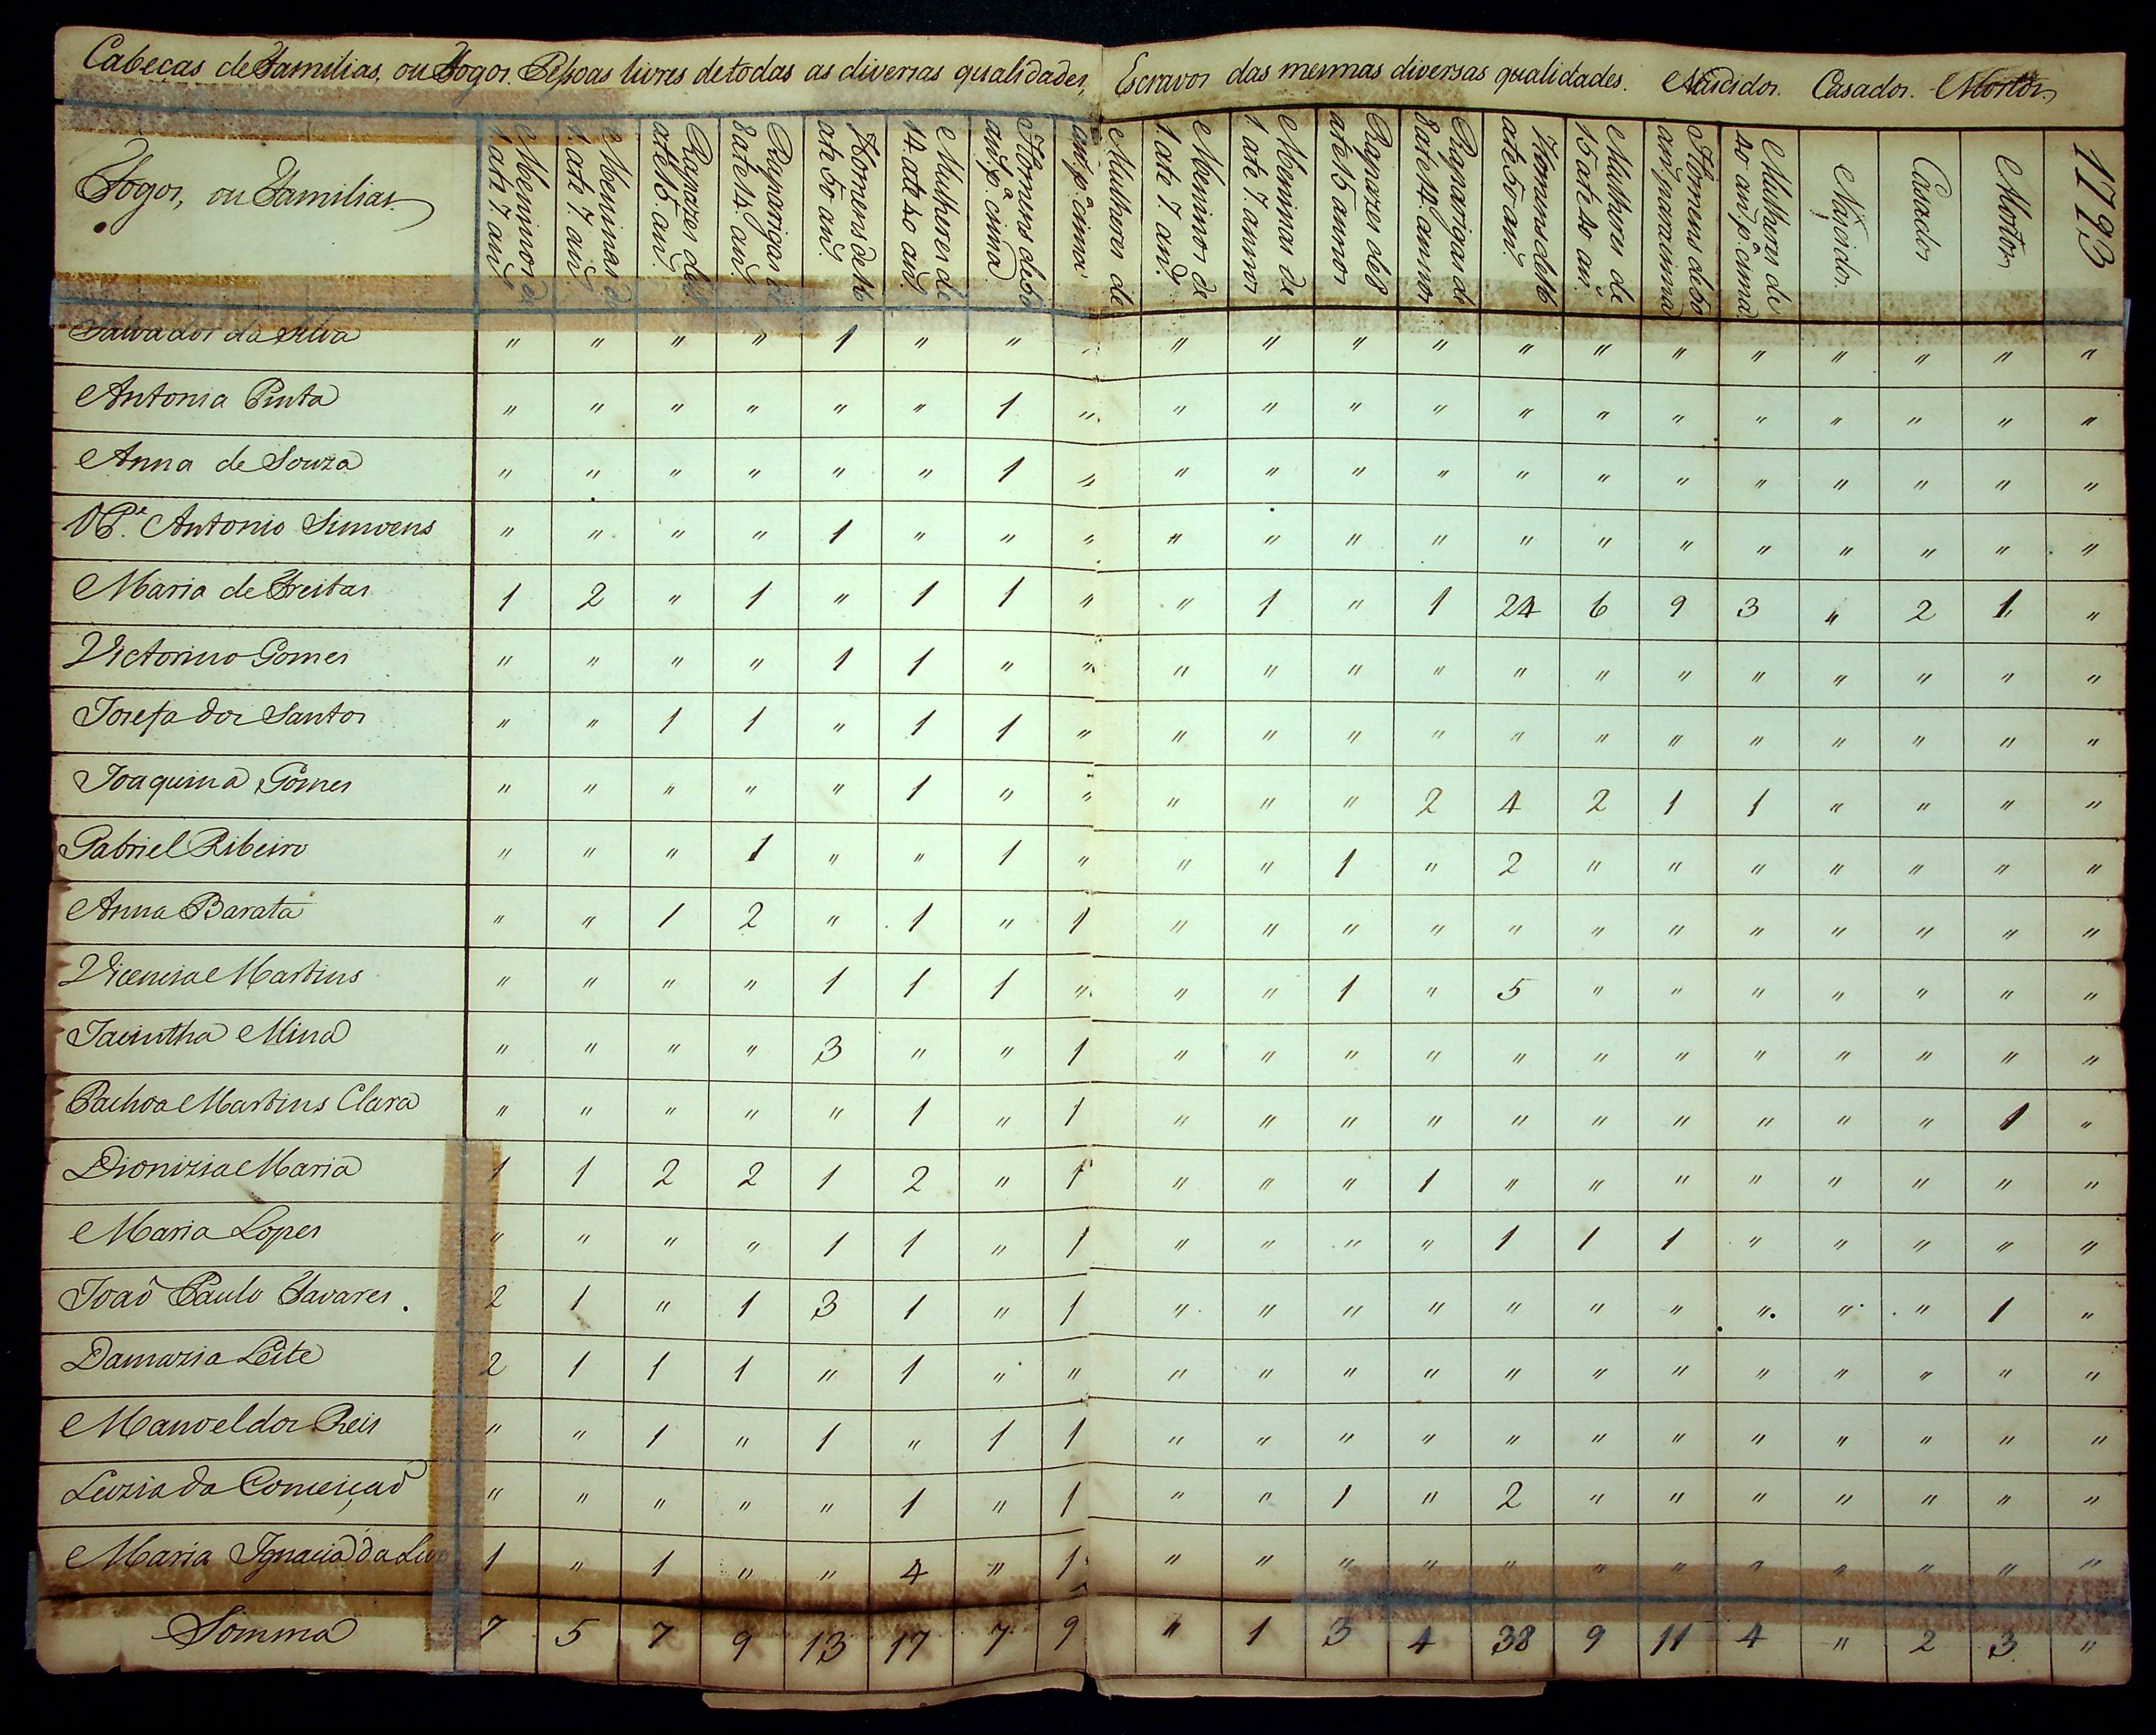 Cabeças de Familias, ou Fogos. Pessoas livres de todas as diversas qualidades, Escravos das mesmas diversas qualidades. Nascidos. Casados. Mortos
Fogos, ou Familias
Meninos de 1 ate 7. an.ˢ
Meninas de 1. ate 7. an.ˢ
Rapazes de 8 ate 15. an.ˢ
Raparigas de 8 ate 14. an.ˢ
Homens de 16 ate 50 an.ˢ
Mulheres de 14. ate 40 an.ˢ
Homens de 50 an.ˢ p.ᵃ cima
Mulheres de an.ˢ p.ᵃ cima
Meninos de 1. ate 7 an.ˢ
Meninas de 1 ate 7. annos
Rapazes de 8 ate 15 annos
Raparigas de 8 ate 14. annos
Homens de 16 ate 50 an.ˢ
Mulheres de 15 ate 40 an.ˢ
Homens de 50 an.ˢ para cima
Mulheres de 40 an.ˢ p.ᵃ cima
Nascidos
Casados
Mortos
1793
Salvador da Silva " " " " 1 " " " " " " " " " " " " " " "
Antonia Pinta " " " " " " 1 " " " " " " " " " " " " "
Anna de Souza " " " " " " 1 " " " " " " " " " " " " "
O P.ᵉ Antonio Simoens " " " " 1 " " " " " " " " " " " " " " "
Maria de Freitas 1 2 " 1 " 1 1 " " 1 " 1 24 6 9 3 " 2 1 "
Victorino Gomes " " " " 1 1 " " " " " " " " " " " " " "
Josefa dos Santos " " 1 1 " 1 1 " " " " " " " " " " " " "
Joaquina Gomes " " " " " 1 " " " " " 2 4 2 1 1 " " " "
Gabriel Ribeiro " " " 1 " " 1 " " " 1 " 2 " " " " " " "
Anna Barata " " 1 2 " 1 " 1 " " " " " " " " " " " "
Vicencia Martins " " " " 1 1 1 " " " 1 " 5 " " " " " " "
Jacintha Mina " " " " 3 " " 1 " " " " " " " " " " " "
Pachoa Martins Clara " " " " " 1 " 1 " " " " " " " " " " 1 "
Dionizia Maria 1 1 2 2 1 2 " 1 " " " 1 " " " " " " " "
Maria Lopes " " " " 1 1 " 1 " " " " 1 1 1 " " " " "
Joaõ Paulo Tavares. 2 1 " 1 3 1 " 1 " " " " " " " " " " 1 "
Damazia Leite 2 1 1 1 " 1 " " " " " " " " " " " " " "
Manoel dos Reis " " 1 " 1 " 1 1 " " " " " " " " " " " "
Luzia da Conceiçaõ " " " " " 1 " 1 " " 1 " 2 " " " " " " "
Maria Ignacia da 1 " 1 " " 4 " 1 " " " " " " " " " " " "
Somma 7 5 7 9 13 17 7 9 " 1 3 4 38 9 11 4 " 2 3 "